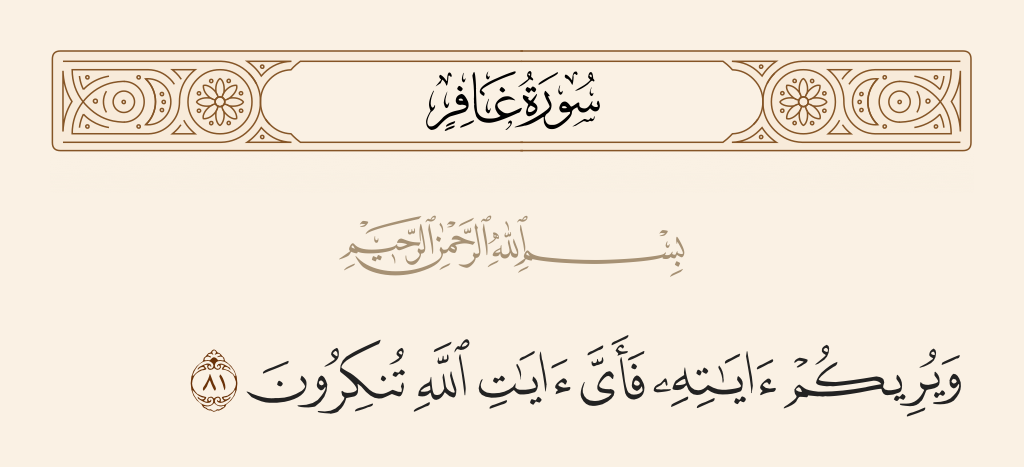 سُورَةُ غَافِرٍ
بِسْمِ ٱللَّهِ ٱلرَّحْمَٰنِ ٱلرَّحِيمِ
وَيُرِيكُمْ ءَايَـٰتِهِۦ فَأَىَّ ءَايَـٰتِ ٱللَّهِ تُنكِرُونَ ٨١